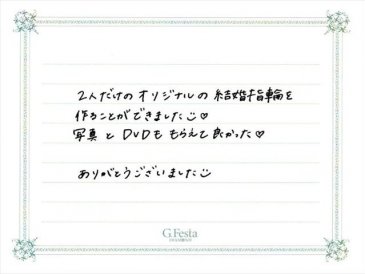 2人だけのオリジナルの結婚指輪を
作ることができました☺♡
写真とDVDももらえて良かった♡
ありがとうございました☺
G.Festa